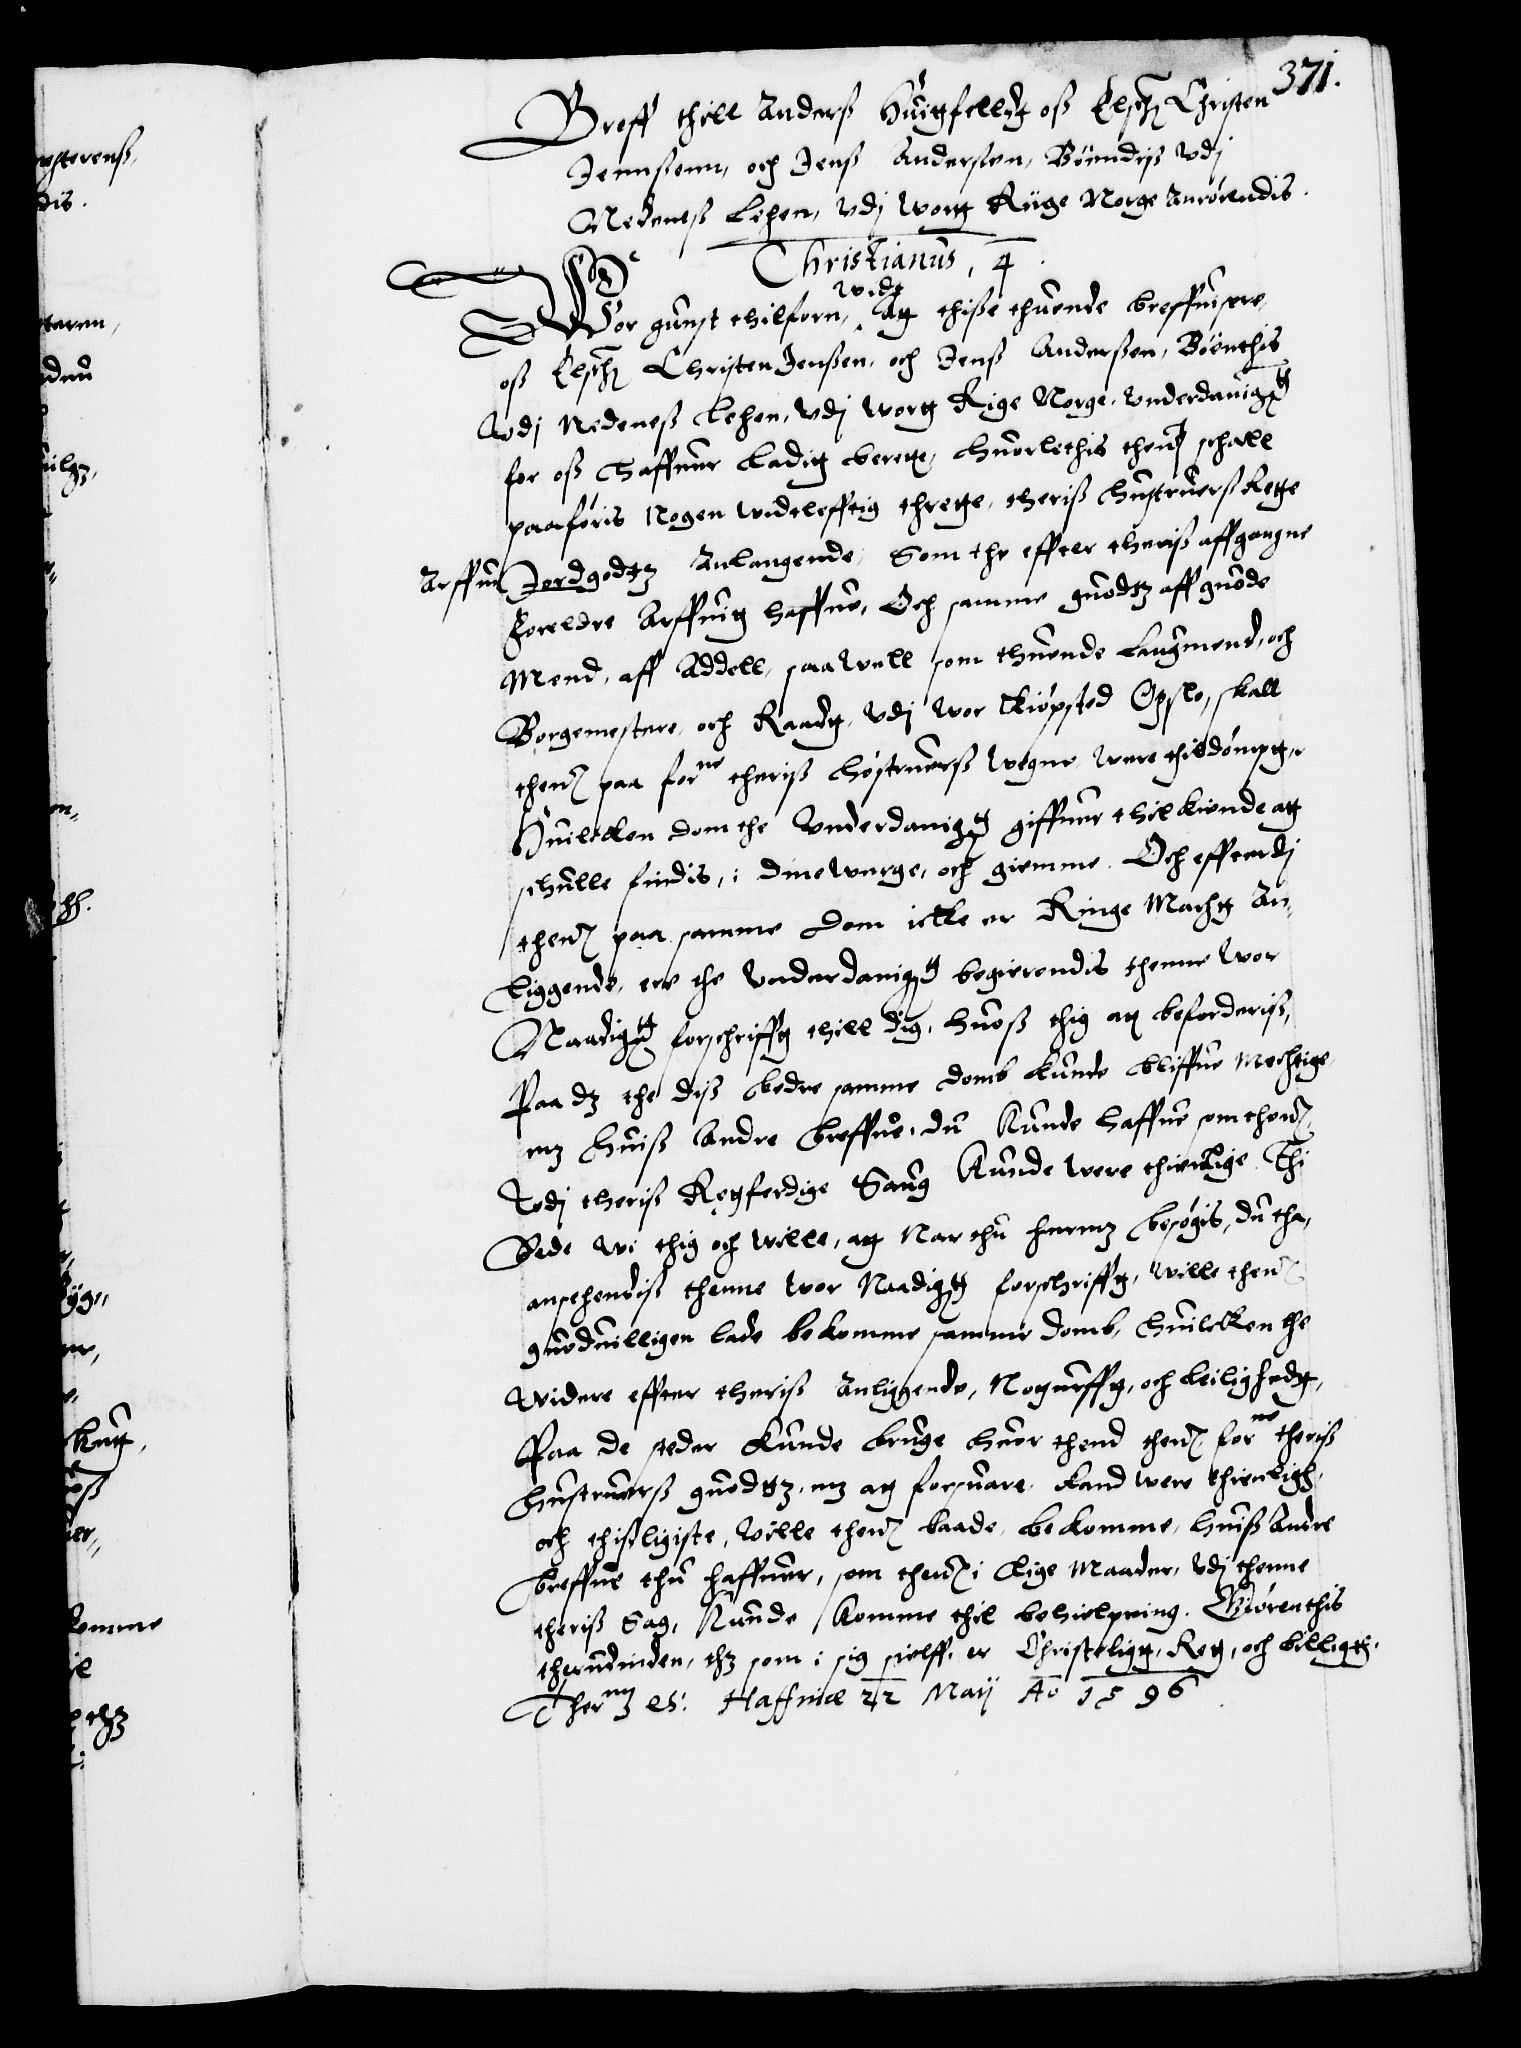 371.
Breff thill Anders Huitfelldtt oss Elschr Christen
Jennssenn, och Jenss Anderssen, Böendis udj
Nedeness Lehen, udj wortt Riige Norge Anrörendis.
Christianus, 4.
Wor gunst thilforn, widt Att thisse thuende breffuisere
oss Elschr Christen Jenssen, och Jenss Anderssen, Böenthis
udj Nedeness Lehen, udj wortt Rige Norge, underdanigstt
for oss haffuer Ladit berette, huorlethis thennom schall
paaföris Nogen widtlefftig thrette, theris hustruerss Rette
Arffue Jordgodtz Anlangende, Som the effter theris affgangne
Foreldre Arffuitt haffue, Och samme guodtz aff guode
Mend, aff Addell, saa well som thuende Laugmend, och
Borgemestere och Raadtt, udj wor Kiöpsted Opslo, skall
thennom paa forne theriss höstruerss wegne were thisdömpt,
Huilcken dom the Underdanigst giffuer thilkiende att
schulle findis, i dine werge, och giemme. Och effterdj
thennom paa samme dom icke er Ringe Machtt An,
liggende, ere the Underdanigst begierendis thenne wor
Naadigste forschrifftt thill dig, huoss thig att befordriss,
Paa dz the diss bedre samme domb kunde bliffue Mechtige
mz huiss Andre breffue, du kunde haffue som thennom
udj theris Rettferdige Saug kunde were thienlige. Thi
Bede wi thig och wille, att Nar thu hermz besögis, du tha,
ansehendiss thenne wor Naadigst forschrifftt, wille thennom
guoduilligen lade bekomme samme domb, huilcken the
widere effter theriss Anliggende, Notturfftt, och leilighedtt,
Paa de steder kunde bruge huor thend thennom forne theriss
hustruerss guodtz, mz att forsuare kand were thienligh,
och thissligiste, wille thennom baade bekomme, huiss Andre
breffue thu haffuer, som thennom i lige Maader, udj thenne
theriss Sag, kunde komme thil behielpning. Giörenthis
therudinden, thz som i sig sielff er Christeligtt, Rett, och billigtt.
Thermz etc: Haffniæ 22 Maij Ao 1596